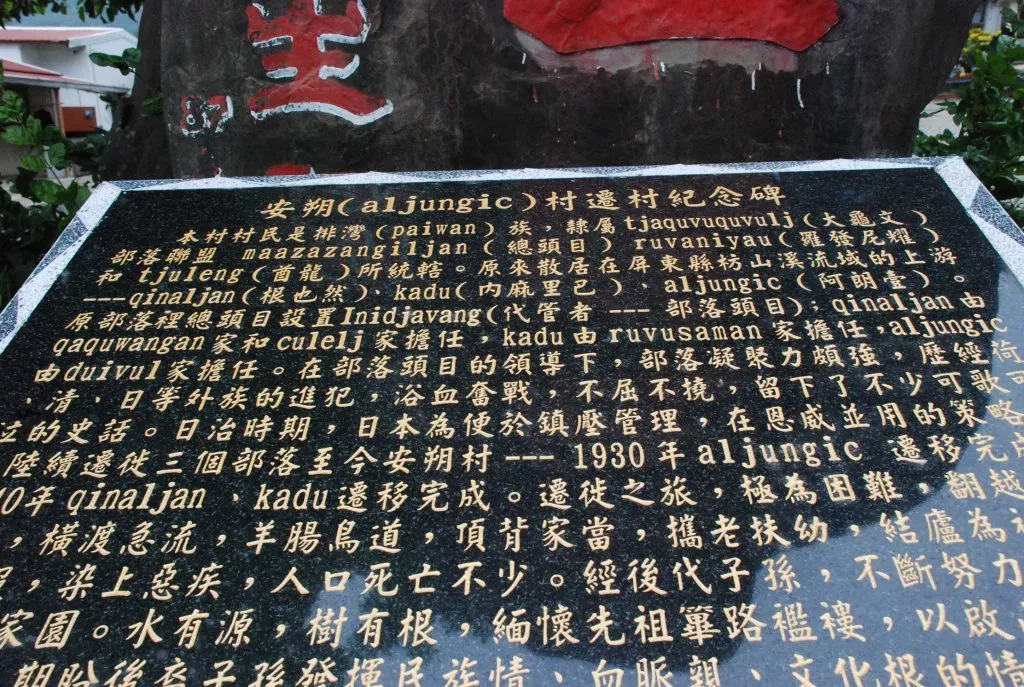 生
87
安朔(aljungic)村遷村紀念碑
本村村民是排灣(paiwan)族，隸屬tjaquvuquvulj(大龜文)
部落聯盟 maazazangiljan(總頭目) ruvaniyau(羅發尼耀)
和 tjuleng(酋龍)所統轄。原來散居在屏東縣枋山溪流域的上游
---qinaljan(根也然)、kadu(內麻里巴)、aljungic(阿朗壹)。
原部落裡總頭目設置Inidjavang(代管者 --- 部落頭目)；qinaljan由
qaquwangan家和culelj家擔任，kadu由ruvusaman家擔任，aljungic
由duivul家擔任。在部落頭目的領導下，部落凝聚力頗強，歷經荷
、清、日等外族的進犯，浴血奮戰，不屈不撓，留下了不少可歌可
泣的史話。日治時期，日本為便於鎮壓管理，在恩威並用的策略
陸續遷徙三個部落至今安朔村---1930年aljungic 遷移完成
40年qinaljan、kadu遷移完成。遷徙之旅，極為困難，翻越
，橫渡急流，羊腸鳥道，頂背家當，攜老扶幼，結廬為
，染上惡疾，人口死亡不少。經後代子孫，不斷努力
家園。水有源，樹有根，緬懷先祖篳路襤褸，以啟
期盼後裔子孫發揮民族情、血脈親、文化根的情